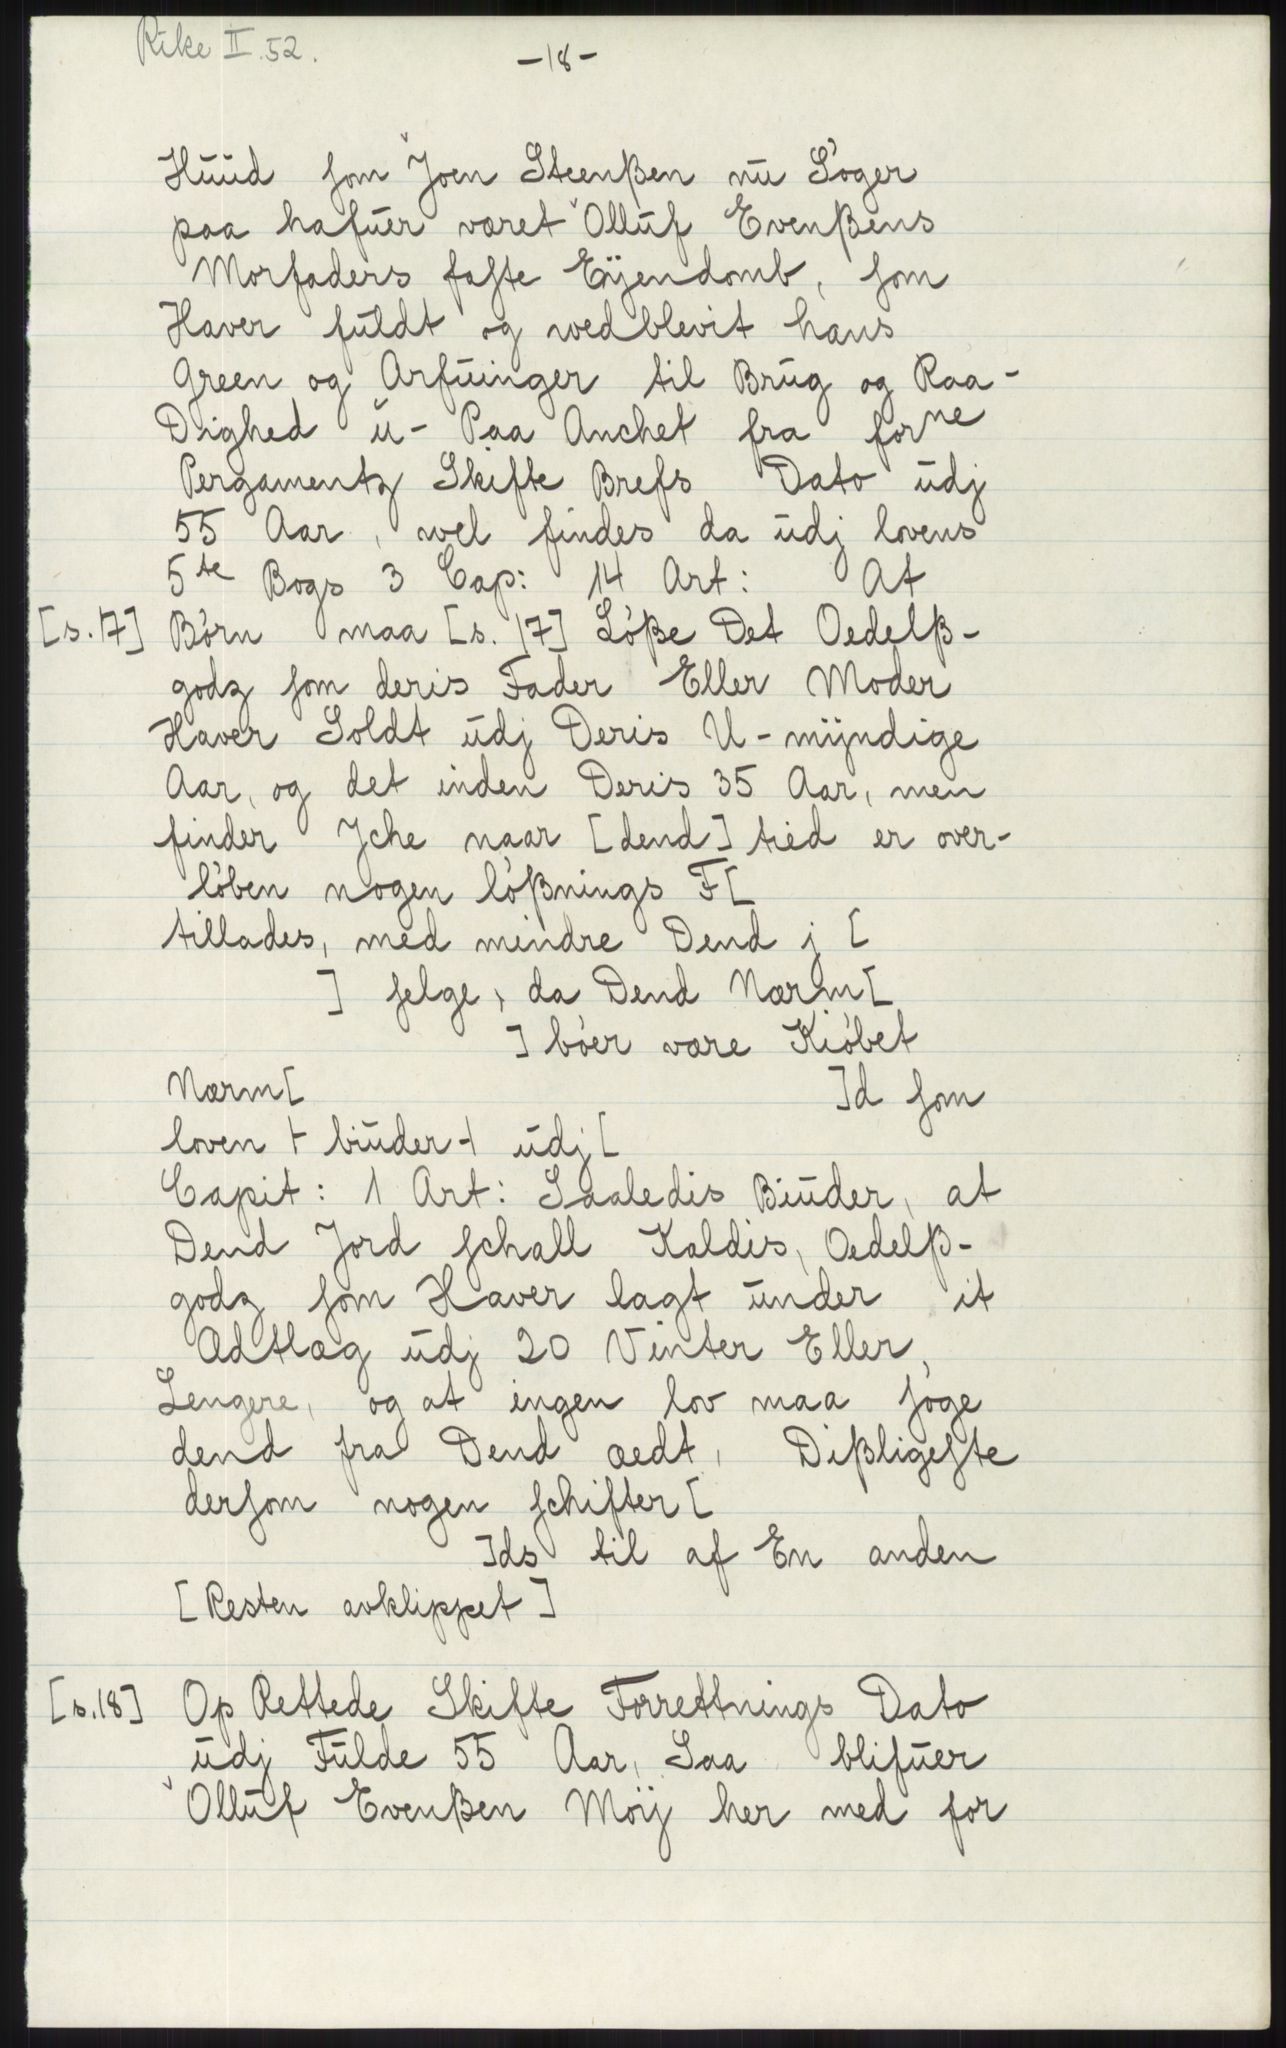 Rike II. 52.
-18-
Huud som Joen Steenßen nu Söger
paa hafuer været Olluf Evenßens
Morfaders faste Eÿendomb, som
Haver fuldt og wedblevit hans
Green og Arfuinger til Brug og Raa-
Dighed u- Paa Anchet fra forne
Pergamentz Skifte Brefs Dato udj
55 Aar, wel findes da udj lovens
5te Bogs 3 Cap: 14 Art: At
[s. 17] Börn maa [s. 17] Löße Det Oedelß-
godz som deris Fader Eller Moder
Haver Soldt udj Deris U-mÿndige
Aar, og det inden Deris 35 Aar, men
finder Jche naar [dend] tied er over-
löben nogen lößnings F[
tillades, med mindre Dend j [
] selge, da Dend Nærm[
] böer være Kiöbet
Nærm[ ]d som
loven ⊢ biuder ⊣ udj [
Capit: 1 Art: Saaledis Biuder, at
Dend Jord schall Kaldis, Oedelß-
godz som Haver lagt under it
Ædtlæg udj 20 Vinter Eller,
Lengere, og at ingen lov maa söge
dend fra Dend ædt, Dißligeste
dersom nogen schifter [
]ds til af En anden
[Resten avklippet]
[s. 18] Op Rettede Skifte Forrettnings Dato
udj Fulde 55 Aar, Saa blifuer
Olluf Evenßen Möÿ her med for